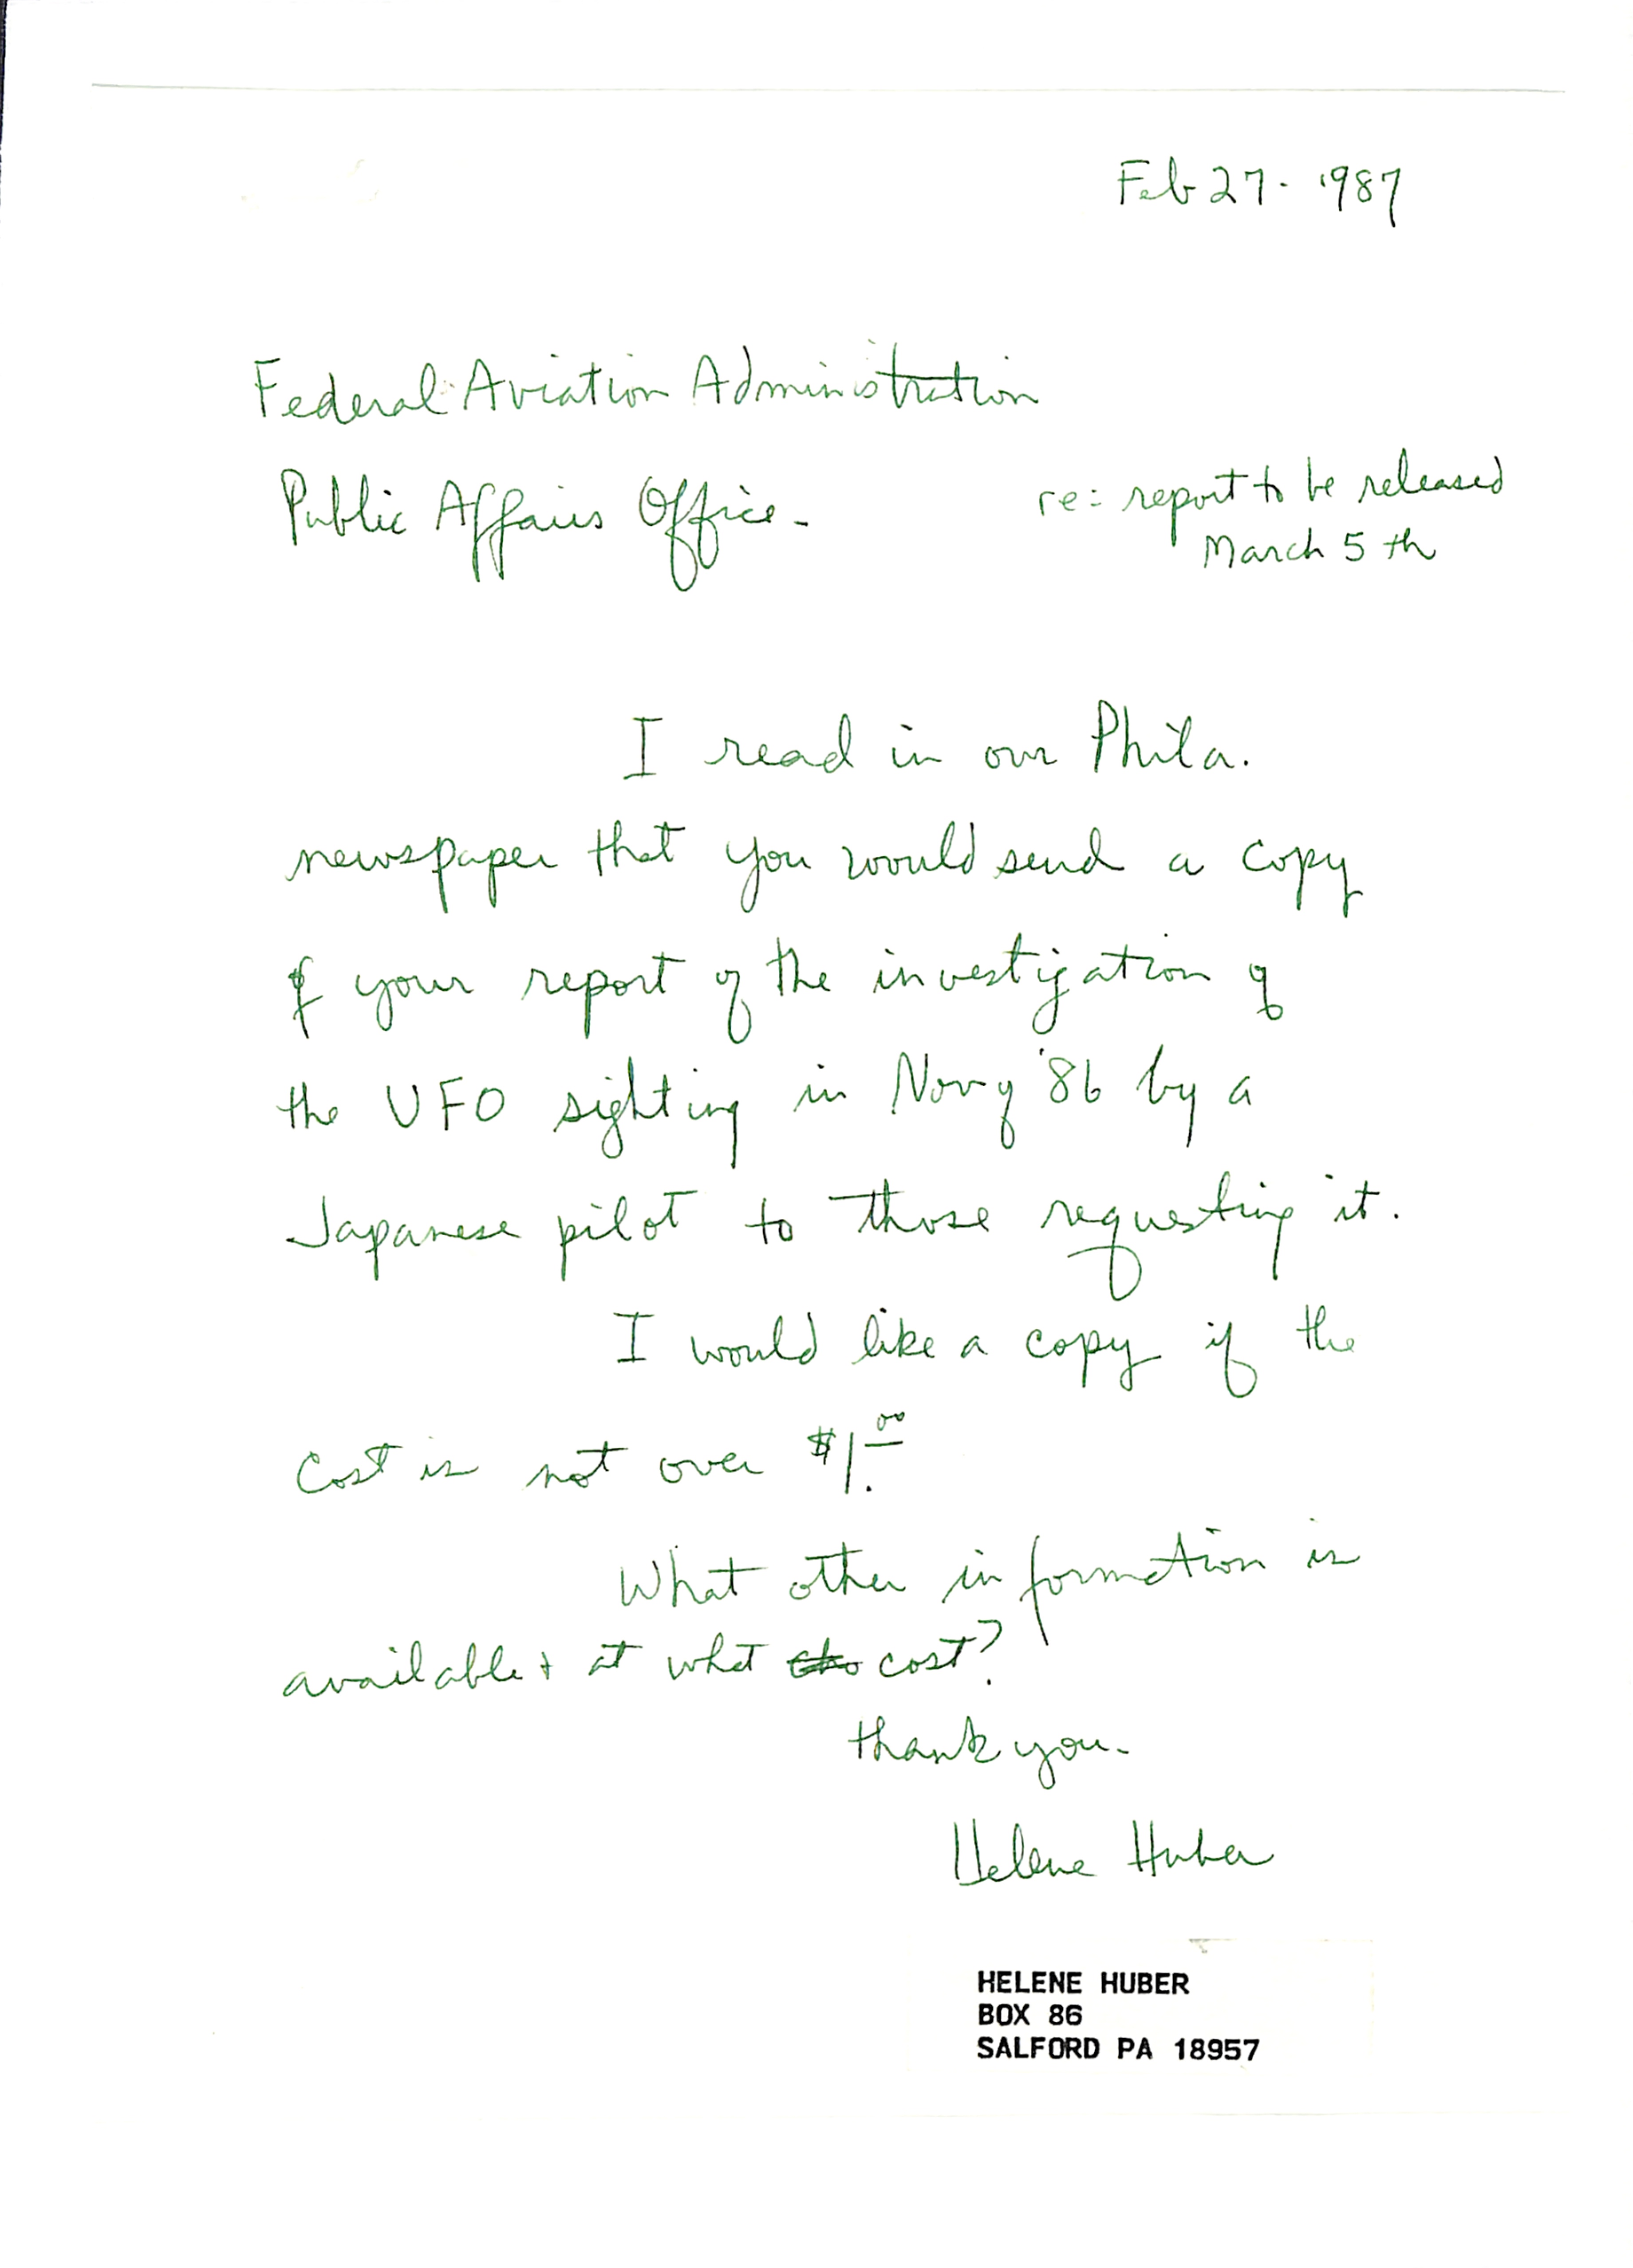 Feb 27 - 1987
Federal Aviation Administration
Public Affairs Office -
re: report to be released
March 5th
I read in our Phila.
newspaper that you would send a copy
of your report of the investigation of
the UFO sighting in Nov of '86 by a
Japanese pilot to those requesting it.
I would like a copy if the
cost is not over $1.00
What other information is
available & at what cost?
thank you -
Helene Huber
HELENE HUBER
BOX 86
SALFORD PA 18957